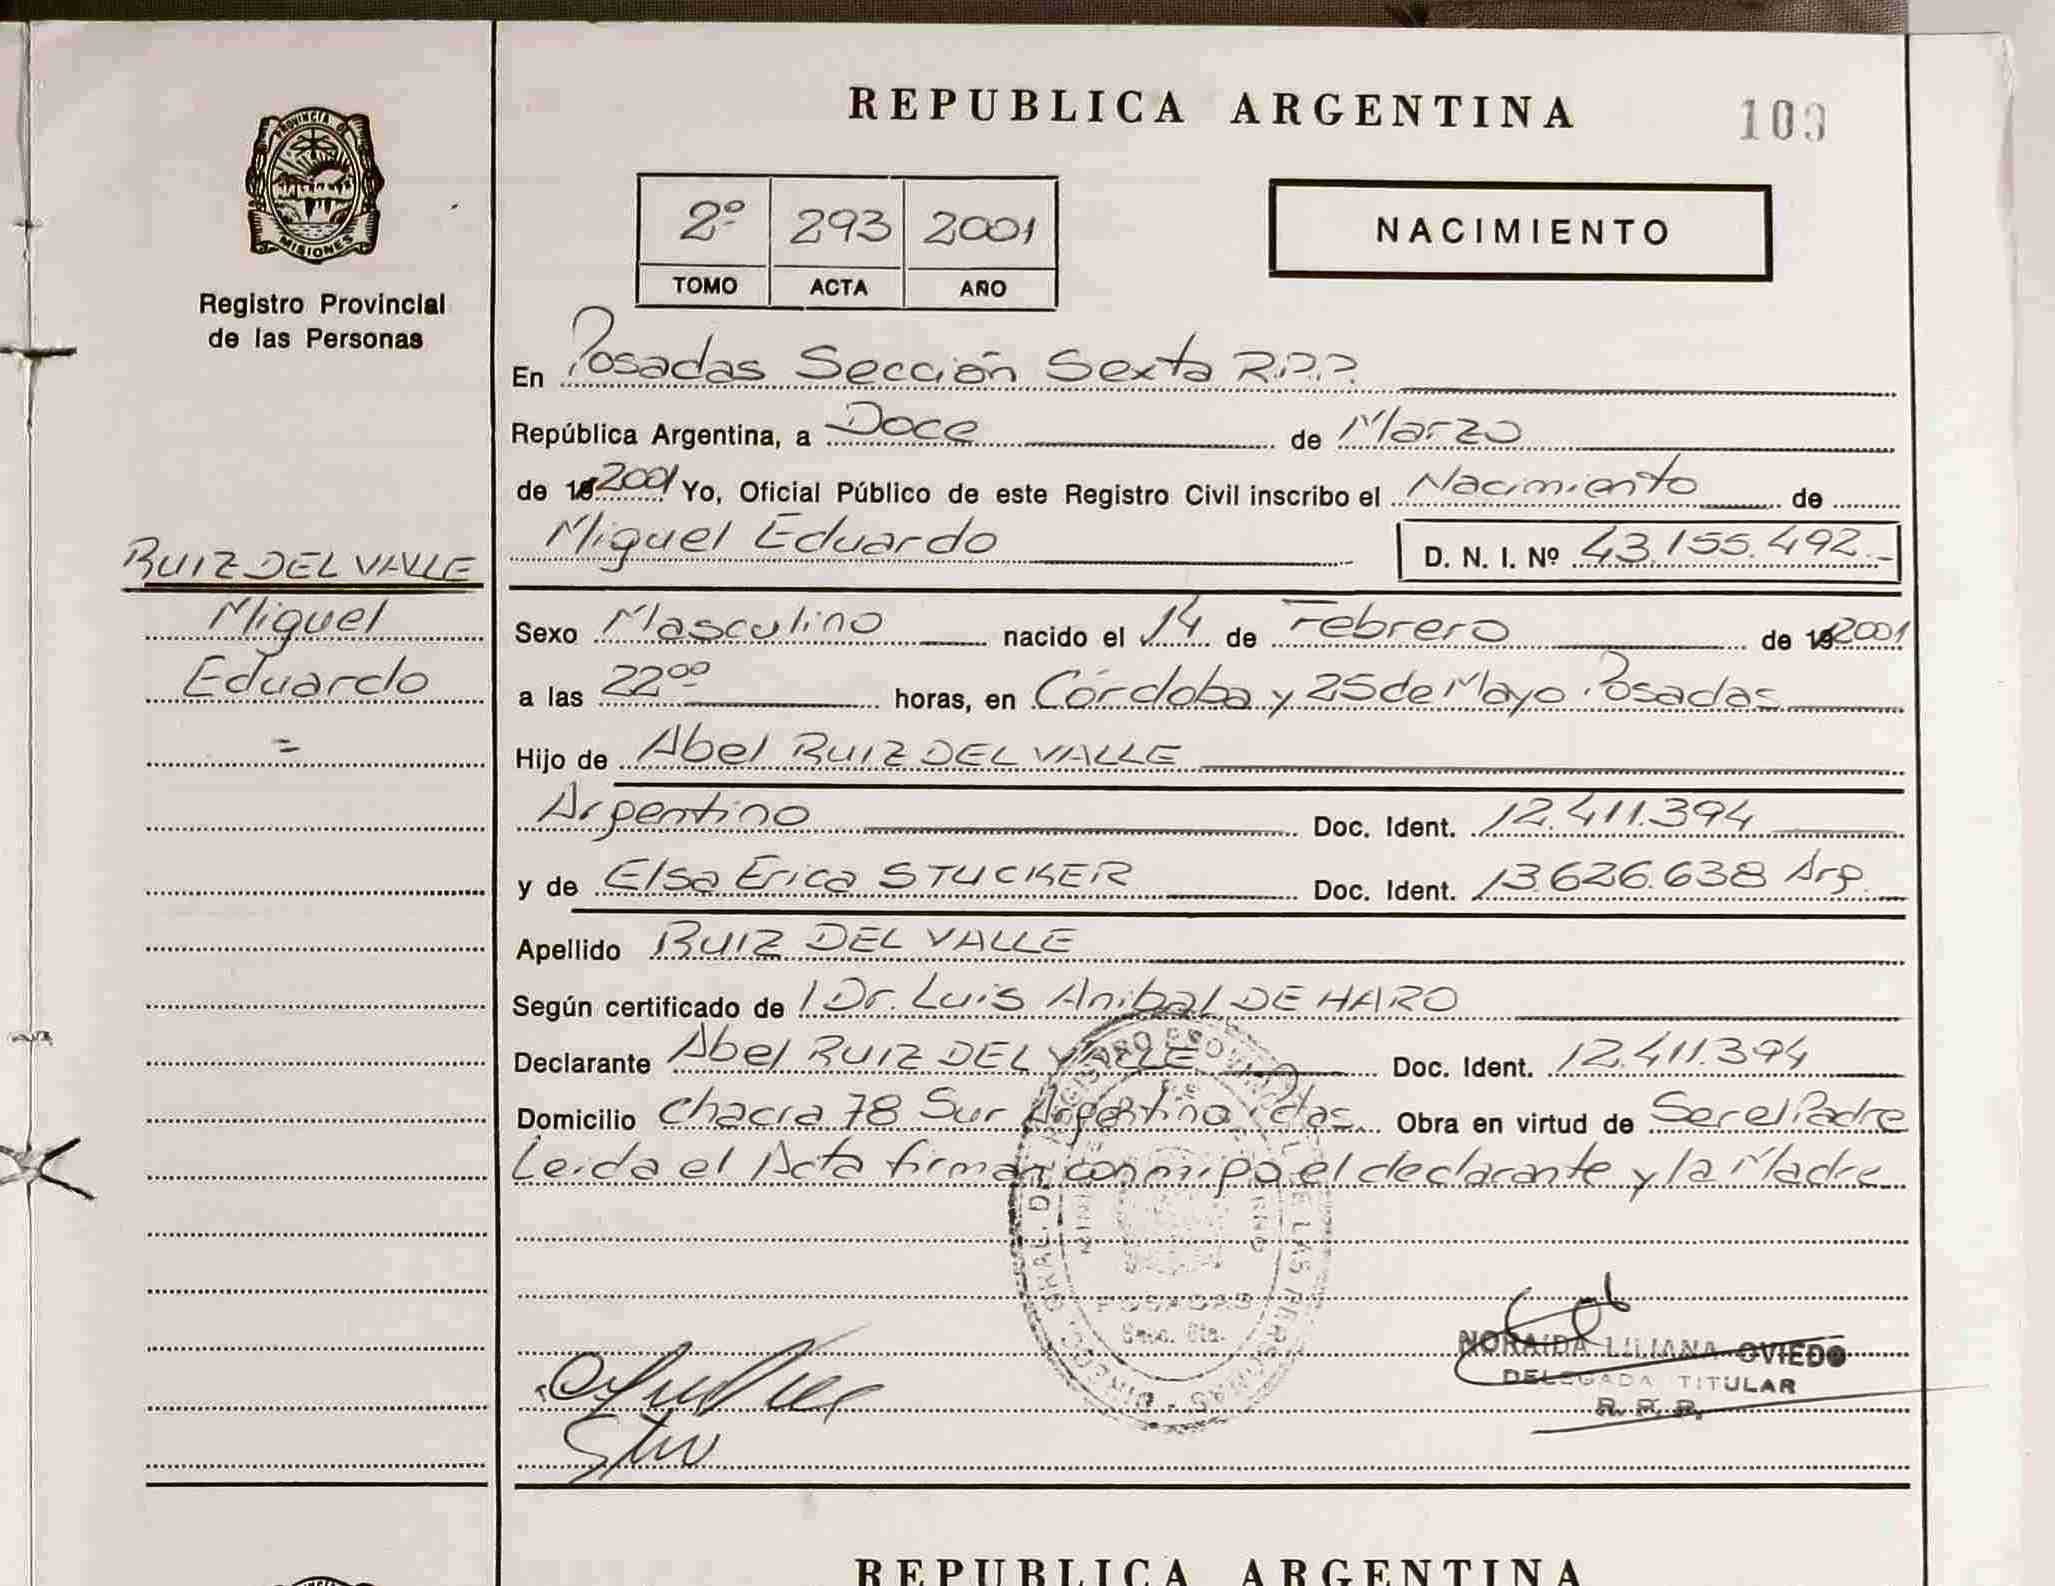 REPUBLICA ARGENTINA
103
PROVINCIA D
MISIONES
Registro Provincial
de las Personas
2º 293 2001
TOMO ACTA AÑO
NACIMIENTO
En Posadas Sección Sexta R.P.P.
República Argentina, a Doce de Marzo
de 19 2001 Yo, Oficial Público de este Registro Civil inscribo el Nacimiento de
Miguel Eduardo D. N. I. Nº 43.155.492.-
RUIZ DEL VALLE
Miguel
Eduardo
=
Sexo Masculino nacido el 14 de Febrero de 19 2001
a las 22⁰⁰ horas, en Córdoba y 25 de Mayo. Posadas
Hijo de Abel RUIZ DEL VALLE
Argentino Doc. Ident. 12.411.394
y de Elsa Erica STUCKER Doc. Ident. 13.626.638 Arg.
Apellido RUIZ DEL VALLE
Según certificado de l Dr. Luis Anibal DE HARO
Declarante Abel RUIZ DEL VALLE Doc. Ident. 12.411.394
Domicilio Chacra 78 Sur Argentina. Pdas. Obra en virtud de Ser el Padre
Leida el Acta firman conmigo el declarante y la Madre
POSADAS
Secc. 6ta.
NORAIDA LILIANA OVIEDO
DELEGADA TITULAR
R. P. P.
REPUBLICA ARGENTINA